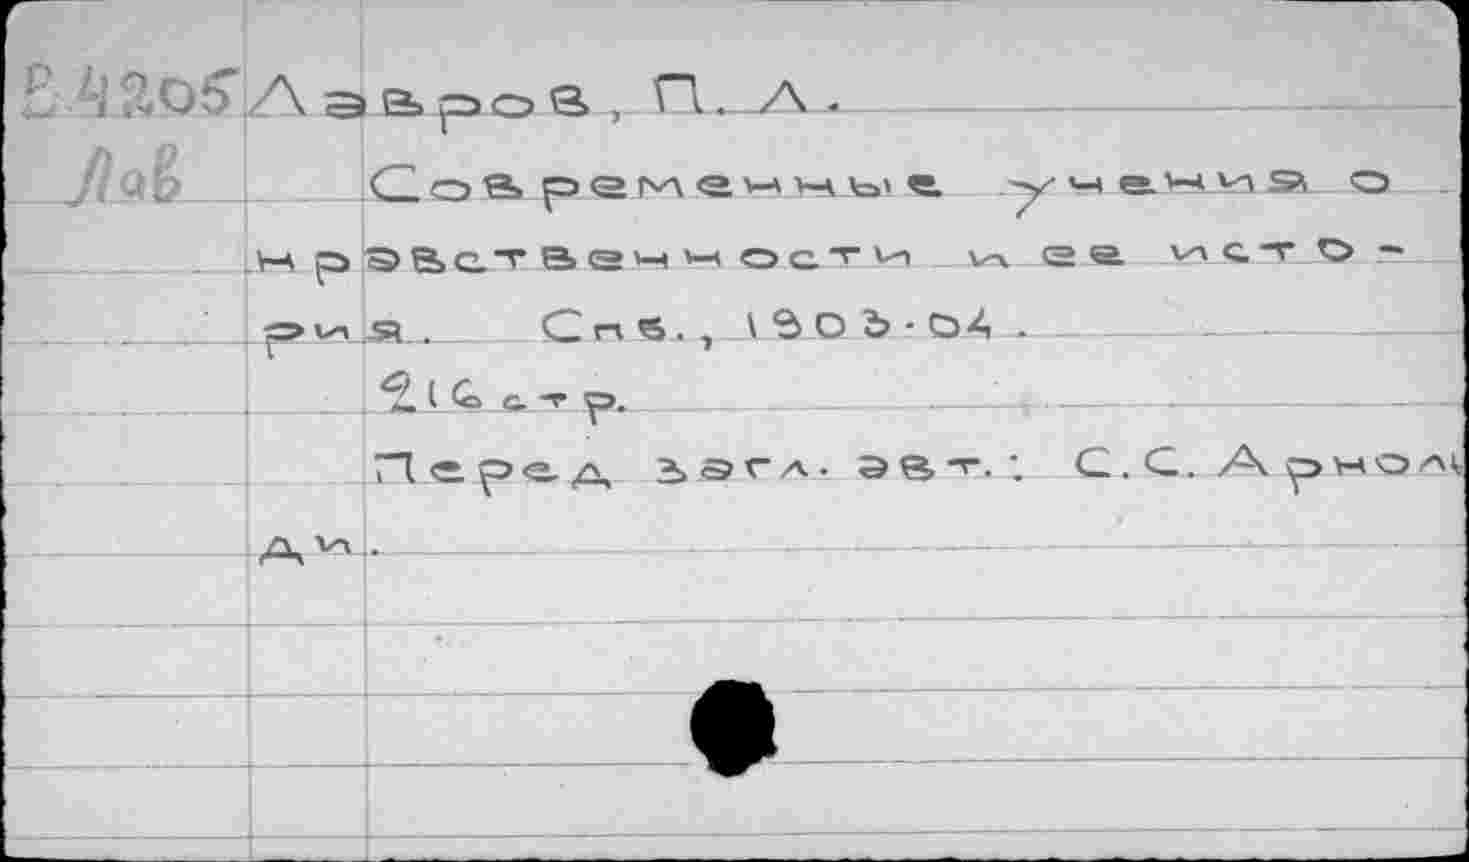 Е 4205 Лавров, П. Л.
Лав Современные учения о
нравственности и ее исто-
рия. Спб., 1903-04.
216 стр.
Перед загл. авт.: С.С. Арноль
ди.